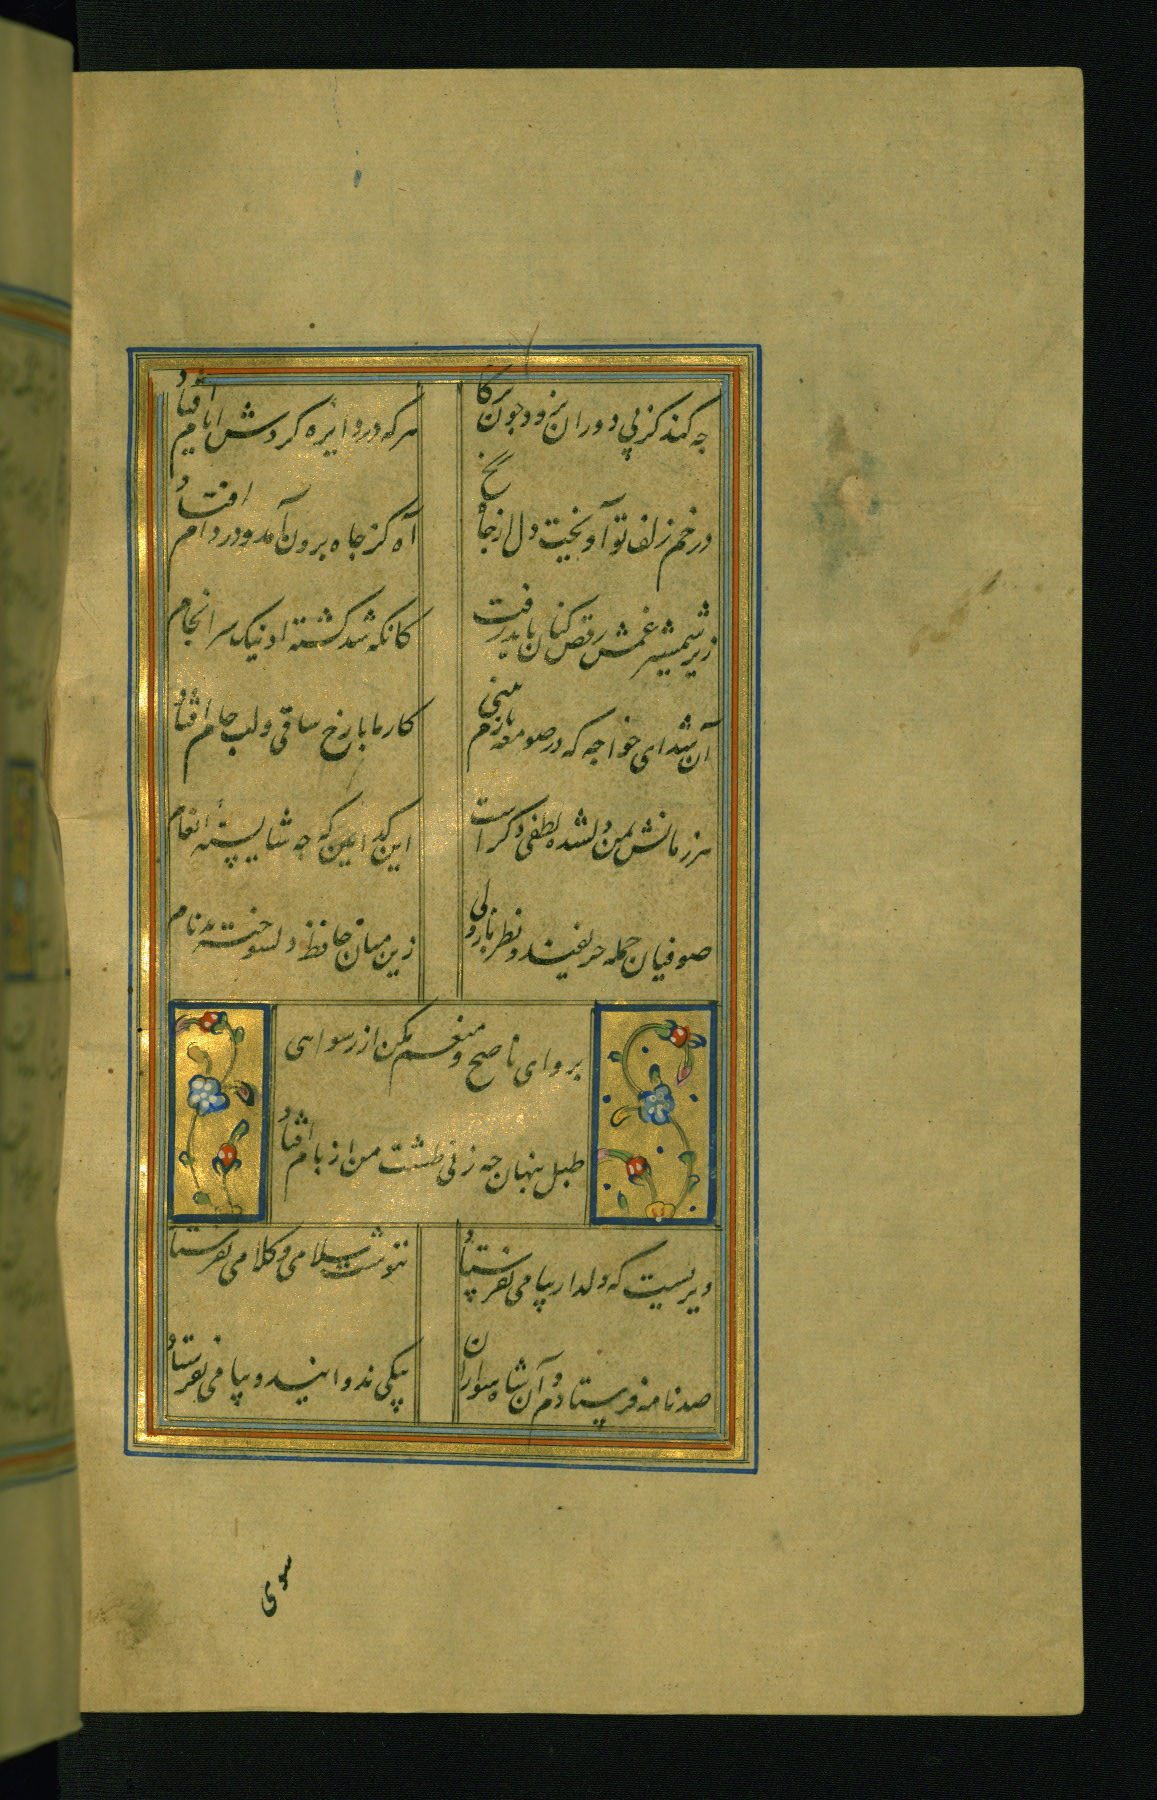 چه کند کز پی دوران نرود چون پرکار
هر که در دایره کردش ایام افتاد
در خم زلف تو آویخت دل از چاه زنخ
آه کز چاه برون آمد و در دام افتاد
زیر شمشیر غمش رقص کنان باید رفت
کانکه شد کشته او نیک سرانجام
آن شد ای خواجه که در صومعه بازم بینی
کار ما با رخ ساقی و لب جام افتاد
هر زمانش بمن دلشده لطفی دکر است
این کدا بین که چه شایسته انعام
صوفیان جمله حریفند و نظرباز ولی
زین میان حافظ دلسوخته بدنام
برو ای ناصح و منعم مکن از رسوایی
طبل پنهان چه زنی طشت من از بام افتاد
دیریست که دلدار پیامی نفرستاد
ننوشت سلامی و کلامی نفرستاد
صد نامه فرستادم و آن شاه سواران
پیکی ندوانید و پیامی نفرستاد
سوی